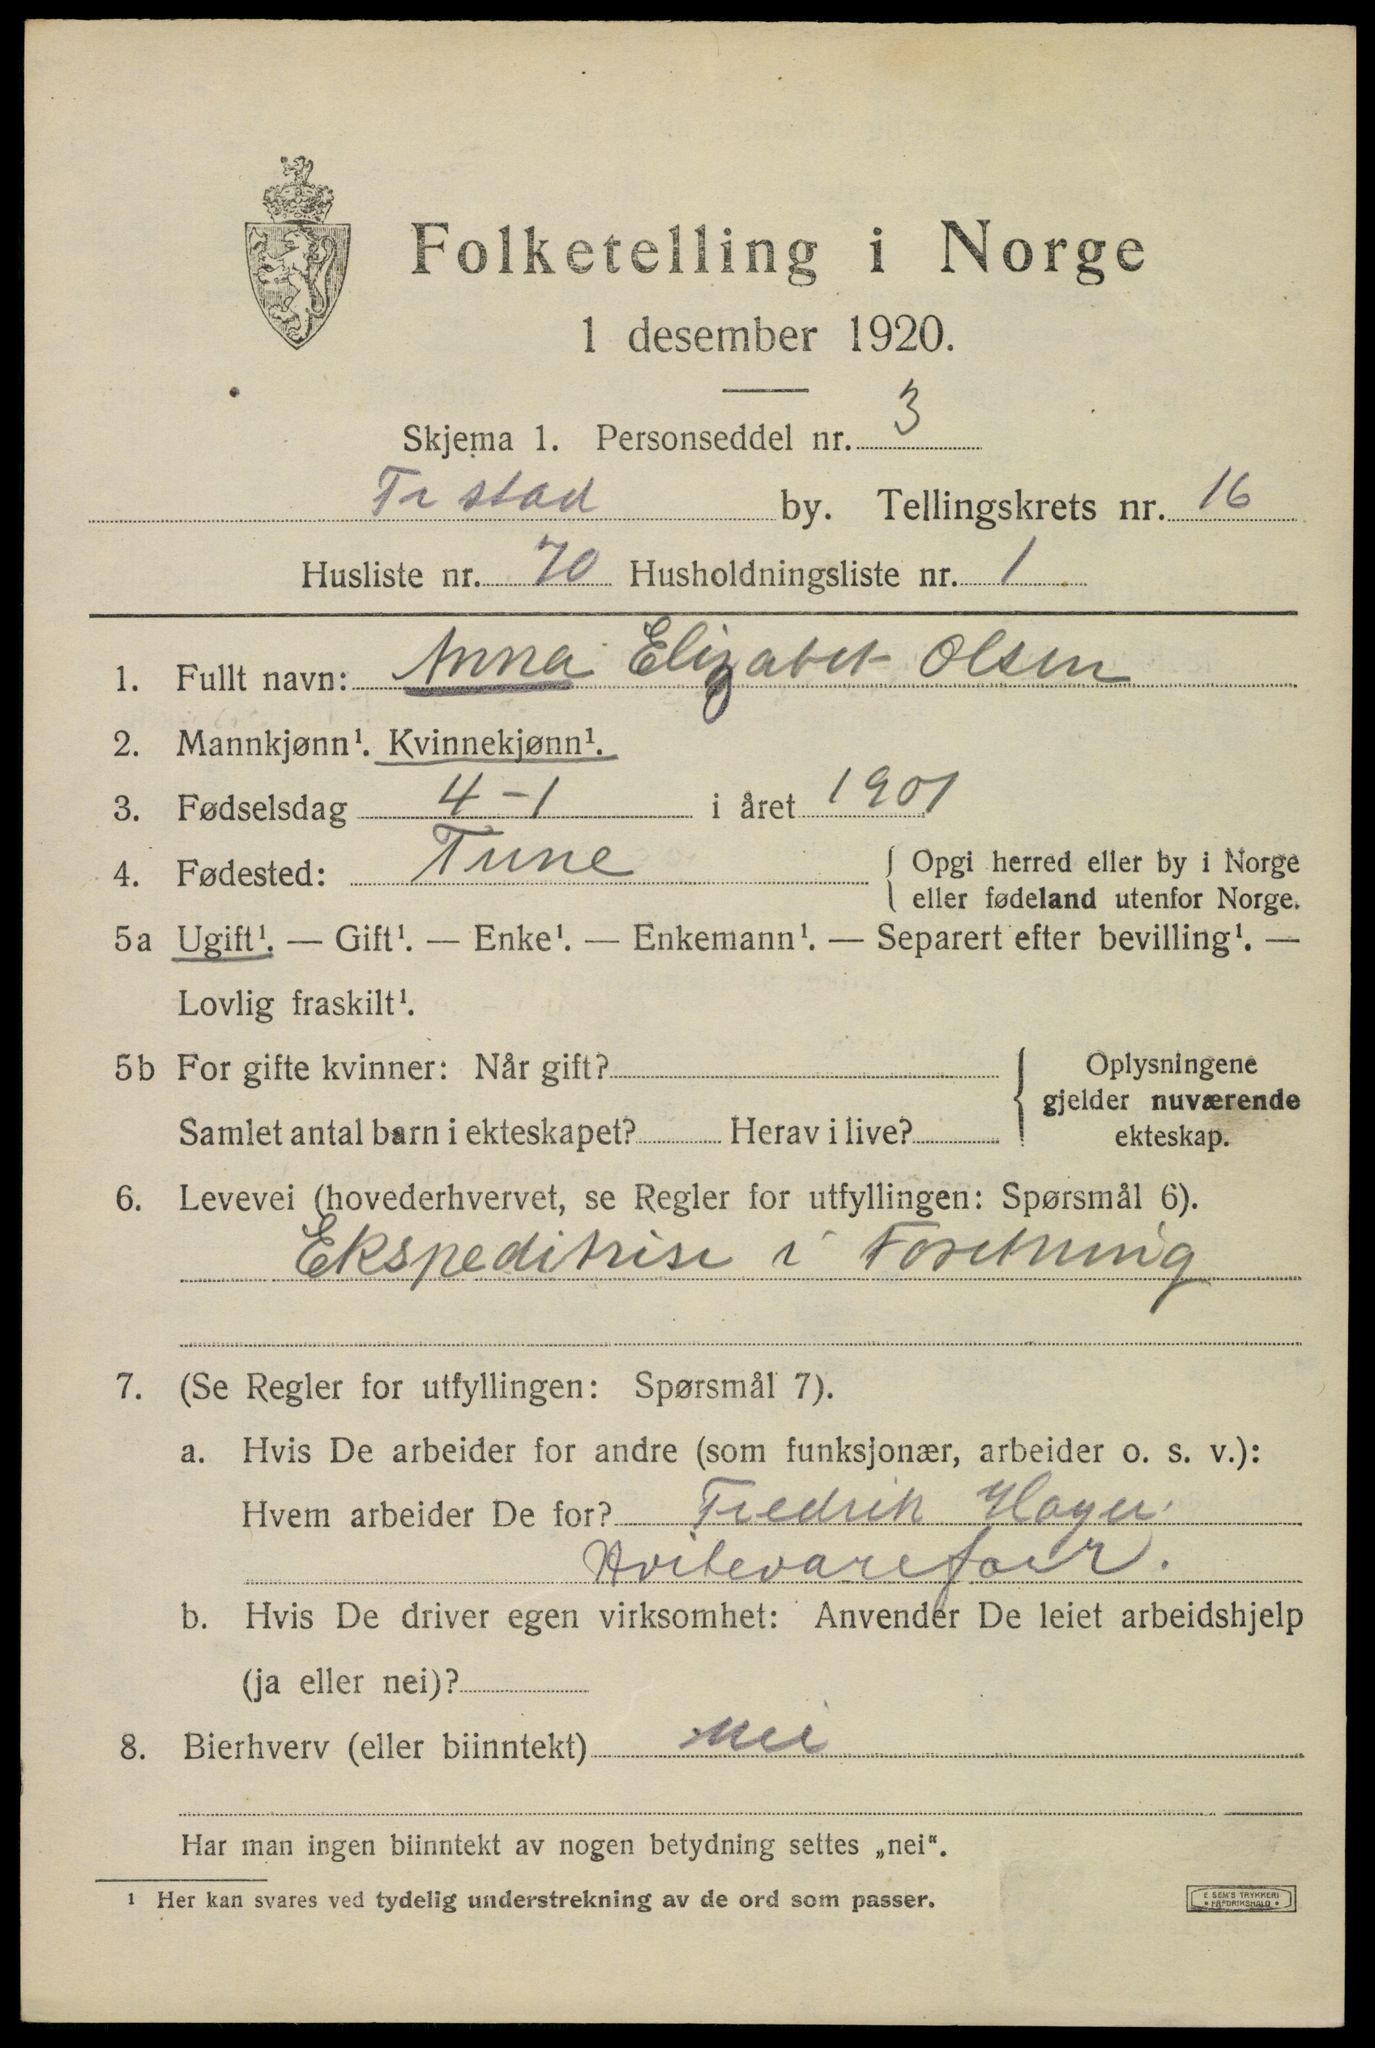 Folketelling i Norge
1 desember 1920.
Skjema 1. Personseddel nr. 3
Fr stad by. Tellingskrets nr. 16
Husliste nr. 70 Husholdningsliste nr. 1
1. Fullt navn: Anna Elizabet Olsen
2. Mannkjønn¹. Kvinnekjønn¹.
3. Fødselsdag 4-1 i året 1901
4. Fødested: Tune { Opgi herred eller by i Norge
eller fødeland utenfor Norge.
5a Ugift¹. — Gift¹. — Enke¹. — Enkemann¹. — Separert efter bevilling¹. —
Lovlig fraskilt¹.
5b For gifte kvinner: Når gift? { Oplysningene
gjelder nuværende
Samlet antal barn i ekteskapet? Herav i live? ekteskap.
6. Levevei (hovederhvervet, se Regler for utfyllingen: Spørsmål 6).
Ekspeditrise i Foretning
7. (Se Regler for utfyllingen: Spørsmål 7).
a. Hvis De arbeider for andre (som funksjonær, arbeider o. s. v.):
Hvem arbeider De for? Fredrik
b. Hvis De driver egen virksomhet: Anvender De leiet arbeidshjelp
(ja eller nei)?
8. Bierhverv (eller biinntekt) nei
Har man ingen biinntekt av nogen betydning settes „nei“.
¹ Her kan svares ved tydelig understrekning av de ord som passer.
E. SEM'S TRYKKERI
• FREDRIKSHALD •